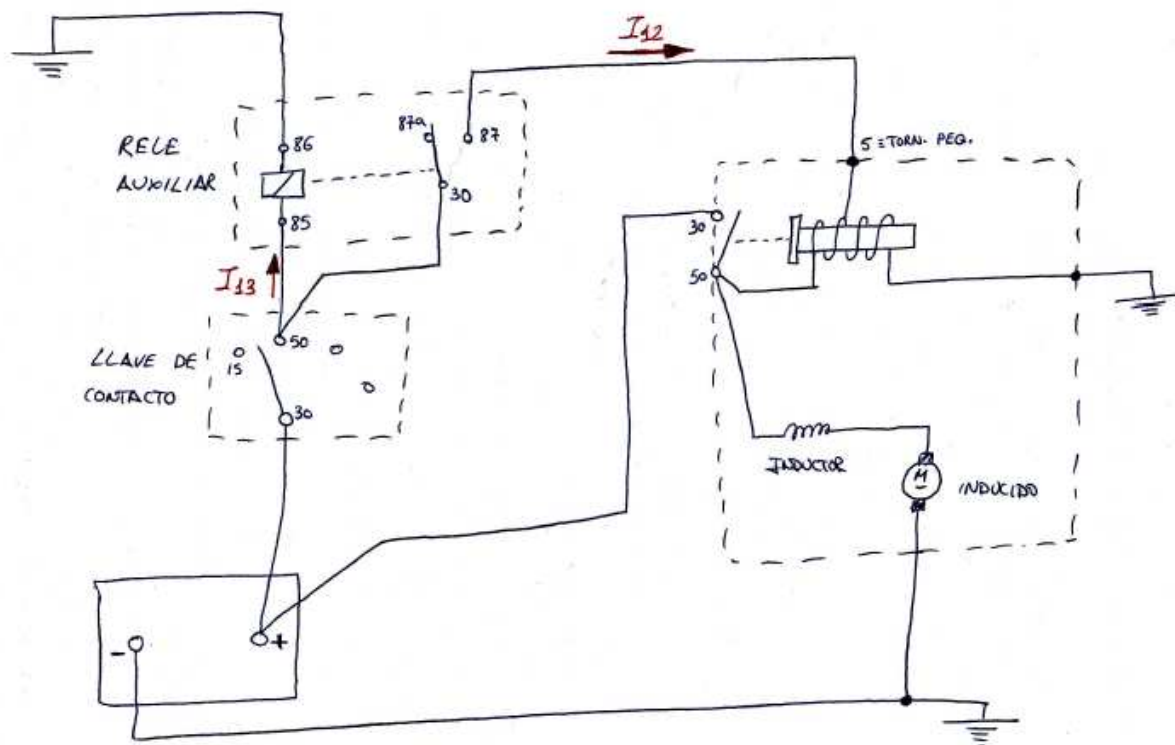 I12
I13
RELE
AUXILIAR
86
85
87a
87
30
5 = TORN. PEQ.
30
50
LLAVE DE
CONTACTO
15
50
30
INDUCTOR
M
INDUCIDO
-
+